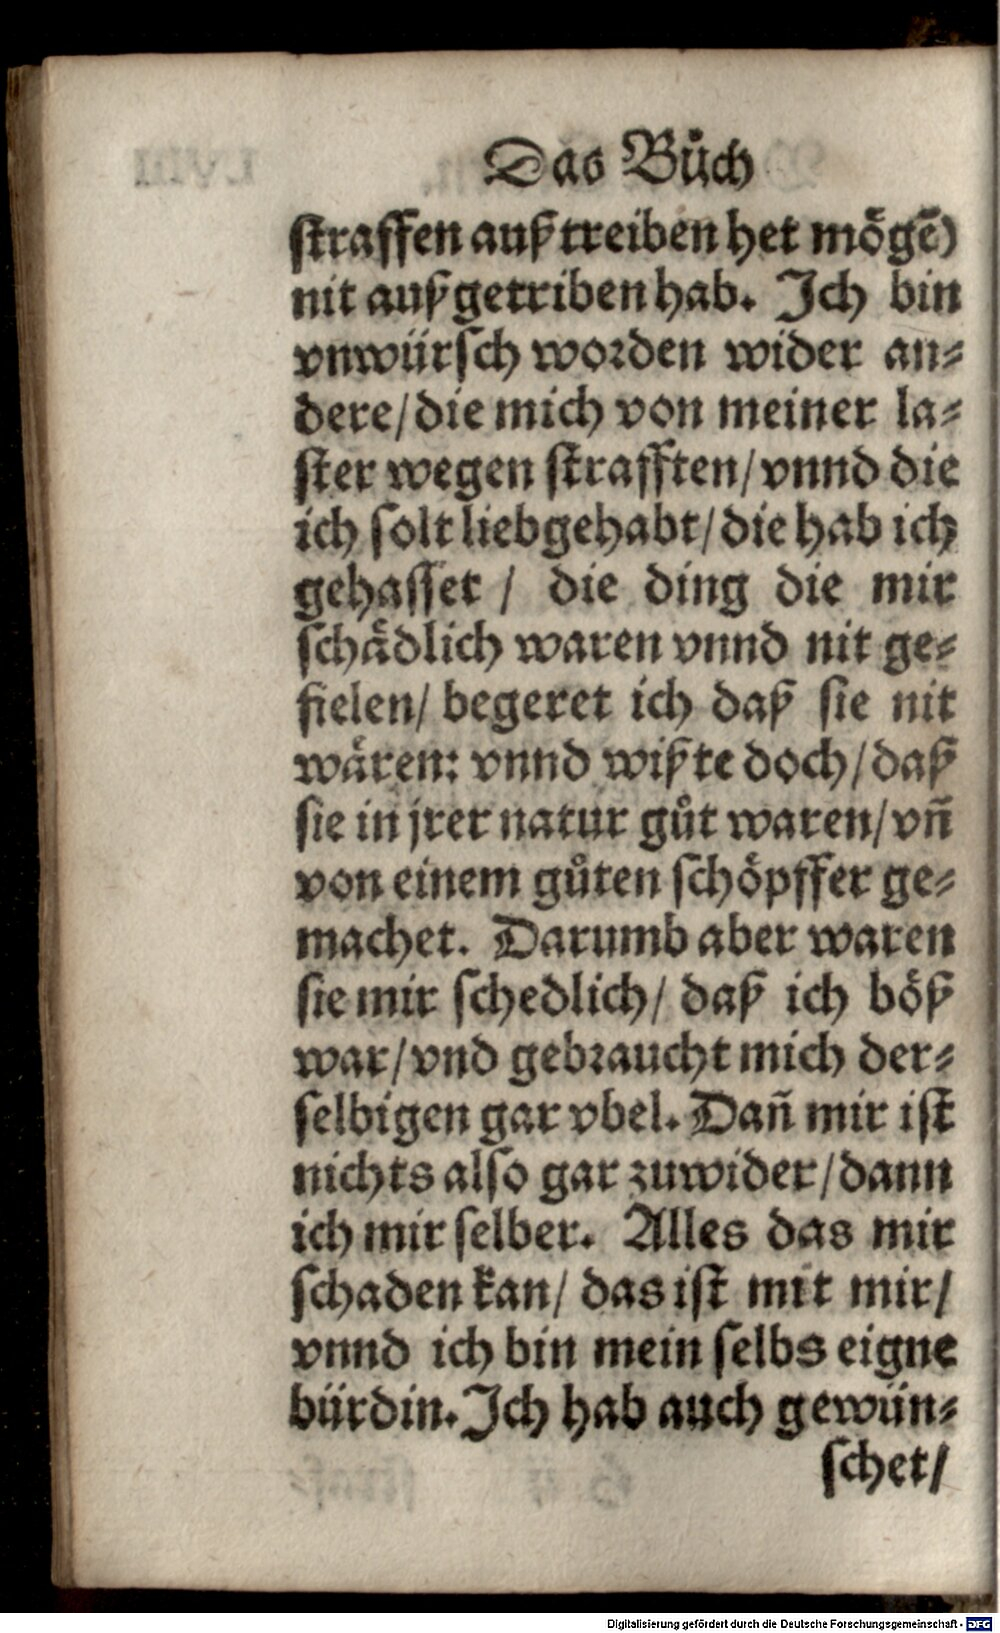 Das Bůch
straffen außtreiben het mögē)
nit außgetriben hab. Ich bin
vnwürsch worden wider an⸗
dere/die mich von meiner la⸗
ster wegen strafften/vnnd die
ich solt liebgehabt/die hab ich
gehasset / die ding die mir
schådlich waren vnnd nit ge⸗
fielen/ begeret ich daß sie nit
wåren: vnnd wißte doch/daß
sie in jrer natur gůt waren/vñ
von einem gůten schöpffer ge⸗
machet. Darumb aber waren
sie mir schedlich/ daß ich böß
war/vnd gebraucht mich der⸗
selbigen gar vbel. Dañ mir ist
nichts also gar zuwider/dann
ich mir selber. Alles das mir
schaden kan/ das ist mit mir/
vnnd ich bin mein selbs eigne
bürdin. Ich hab auch gewün⸗
schet/
Digitalisierung gefördert durch die Deutsche Forschungsgemeinschaft - DFG